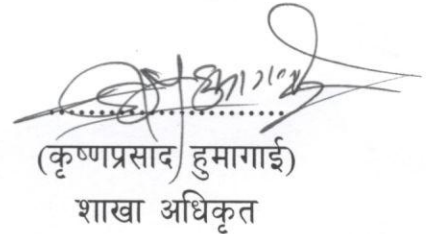 (कृष्णप्रसाद हुमागाई)
शाखा अधिकृत